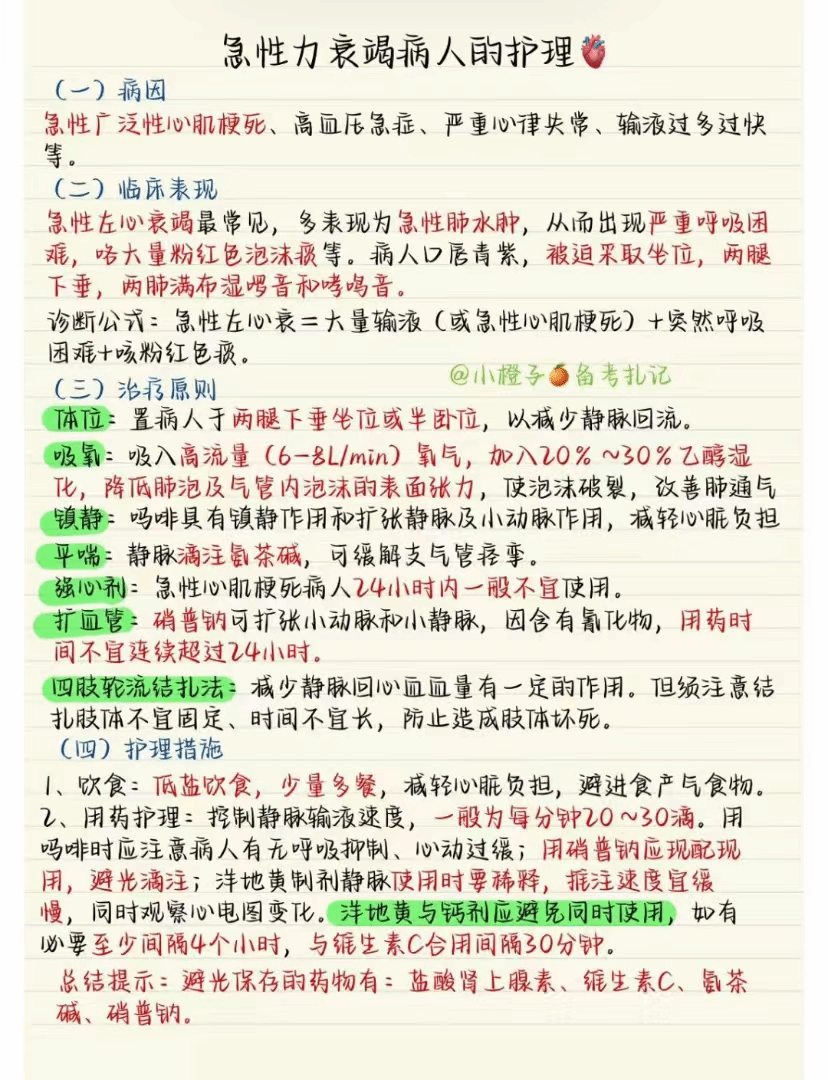 急性力衰竭病人的护理
（一）病因
急性广泛性心肌梗死、高血压急症、严重心律失常、输液过多过快
等。
（二）临床表现
急性左心衰竭最常见，多表现为急性肺水肿，从而出现严重呼吸困
难，咯大量粉红色泡沫痰等。病人口唇青紫，被迫采取坐位，两腿
下垂，两肺满布湿啰音和哮鸣音。
诊断公式：急性左心衰＝大量输液（或急性心肌梗死）+突然呼吸
困难+咳粉红色痰。
@小橙子🍊备考扎记
（三）治疗原则
体位：置病人于两腿下垂坐位或半卧位，以减少静脉回流。
吸氧：吸入高流量（6-8L/min）氧气，加入20%~30%乙醇湿
化，降低肺泡及气管内泡沫的表面张力，使泡沫破裂，改善肺通气
镇静：吗啡具有镇静作用和扩张静脉及小动脉作用，减轻心脏负担
平喘：静脉滴注氨茶碱，可缓解支气管痉挛。
强心剂：急性心肌梗死病人24小时内一般不宜使用。
扩血管：硝普钠可扩张小动脉和小静脉，因含有氰化物，用药时
间不宜连续超过24小时。
四肢轮流结扎法：减少静脉回心血血量有一定的作用。但须注意结
扎肢体不宜固定、时间不宜长，防止造成肢体坏死。
（四）护理措施
1、饮食：低盐饮食，少量多餐，减轻心脏负担，避进食产气食物。
2、用药护理：控制静脉输液速度，一般为每分钟20~30滴。用
吗啡时应注意病人有无呼吸抑制、心动过缓；用硝普钠应现配现
用，避光滴注；洋地黄制剂静脉使用时要稀释，推注速度宜缓
慢，同时观察心电图变化。洋地黄与钙剂应避免同时使用，如有
必要至少间隔4个小时，与维生素C合用间隔30分钟。
总结提示：避光保存的药物有：盐酸肾上腺素、维生素C、氨茶
碱、硝普钠。